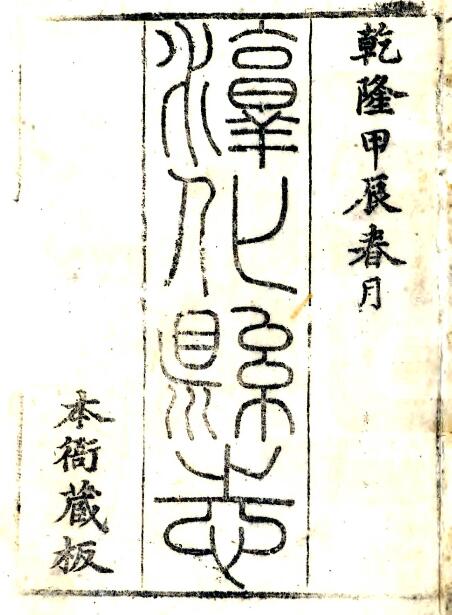 乾隆甲辰春月
淳化縣志
本衙蔵板